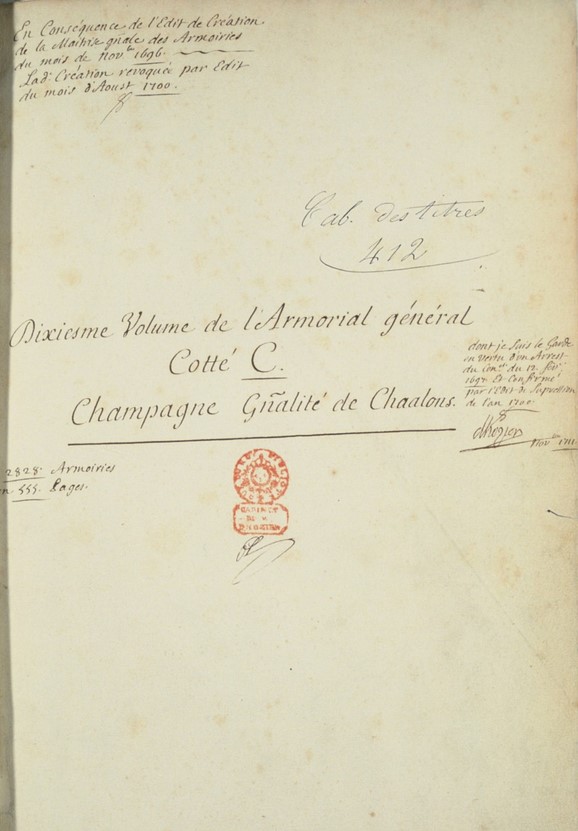 En Conséquence de l'Edit de Création
de la Maitrise gnale des Armoiries
du mois de Novbre 1696.
Lad. Création revoquée par Edit
du mois d'Aoust 1700.
Cab. des titres
412
Dixiesme Volume de l'Armorial général
Cotté C.
Champagne Gñalité de Chaalons.
dont je suis le Garde
en Vertu d'un Arrest
du 12. fév.
1697. Et Confirmé
par l'Edit de Supression
de l'an 1700.
d'Hozier
Novbre 1711
2828. Armoiries
555. Pages.
CABINET
D'HOZIER